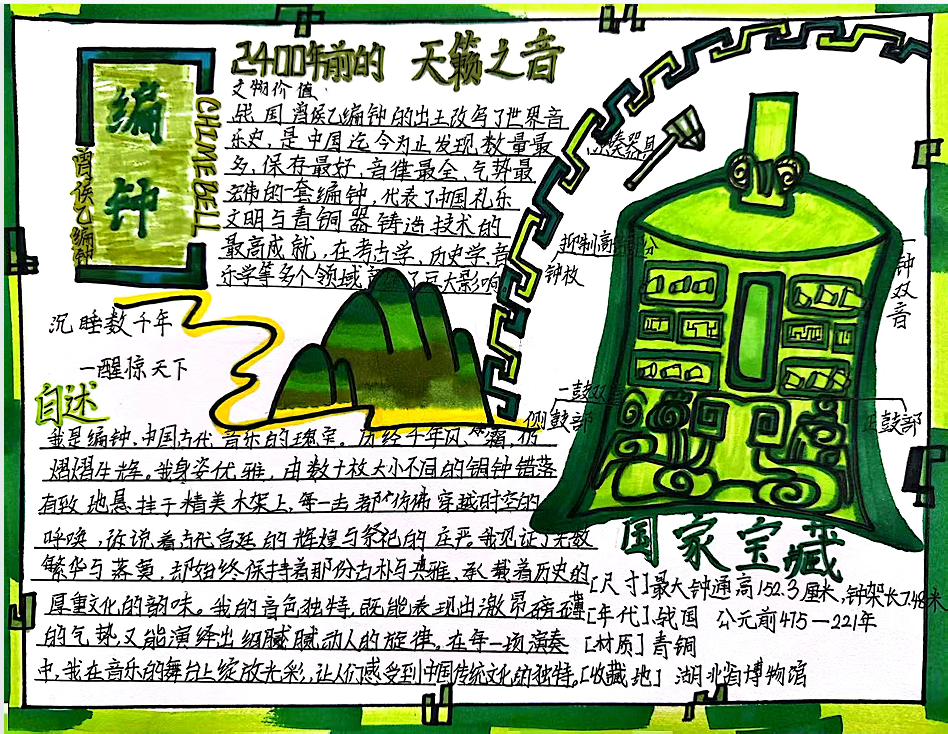 编钟
CHIMEBELL
曾侯乙编钟
2400年前的 天籁之音
文物价值:
战国曾侯乙编钟的出土改写了世界音
乐史,是中国迄今为止发现数量最
多,保存最好,音律最全,气势最
宏伟的一套编钟,代表了中国礼乐
文明与青铜器铸造技术的
最高成就,在考古学、历史学、音
乐学等多个领域 了巨大影响。
沉睡数千年
一醒惊天下
演奏器具
抑制高音部分
钟枚
钟双音
一鼓双音
侧鼓部
正鼓部
自述
我是编钟,中国古代音乐的瑰宝。历经千年风霜,仍
熠熠生辉。我身姿优雅,由数十枚大小不同的铜钟错落
有致地悬挂于精美木架上,每一击都仿佛穿越时空的
呼唤,诉说着古代宫廷的辉煌与祭祀的庄严。我见证了无数
繁华与落寞,却始终保持着那份古朴与典雅,承载着历史的
厚重文化的韵味。我的音色独特,既能表现出激昂磅礴
的气势又能演绎出细腻腻动人的旋律。在每一场演奏
中,我在音乐的舞台上绽放光彩,让人们感受到中国传统文化的独特。
国家宝藏
[尺寸]最大钟通高152.3厘米,钟架长7.48米
[年代]战国 公元前475—221年
[材质]青铜
[收藏地] 湖北省博物馆